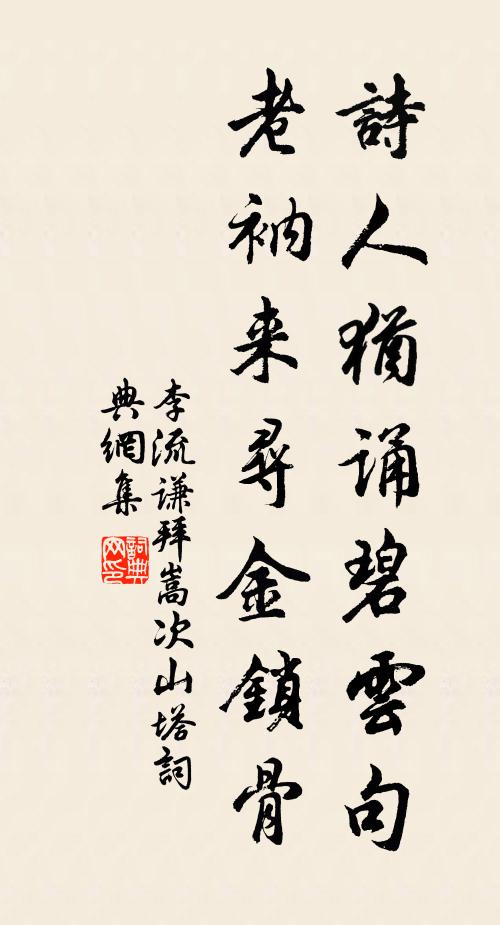 詩人猶誦碧雲句
老衲来尋金鎖骨
李流谦拜嵩次山塔詞
典網集
詞典網印